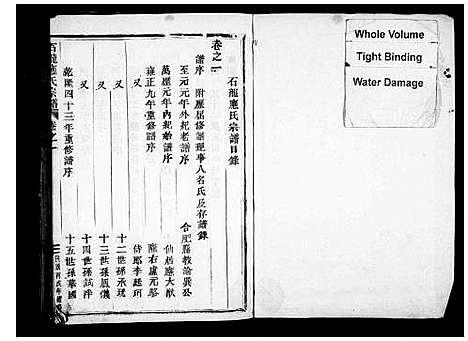 石龍應氏宗譜目錄
卷之一
譜序 附歷屆修譜理事人名氏及存譜錄
至元元年外紀老譜序 合肥縣教諭
萬曆元年內紀始譜序 仙居應大猷
雍正九年重修譜序 雍右盧元駱
又 侍郎李廷珂
又 十二世孫承琉
又 十三世孫風儀
乾隆四十三年重修譜序 十四世孫試泮
十五世孫華國
石龍應氏宗譜 卷之一
Whole Volume
Tight Binding
Water Damage